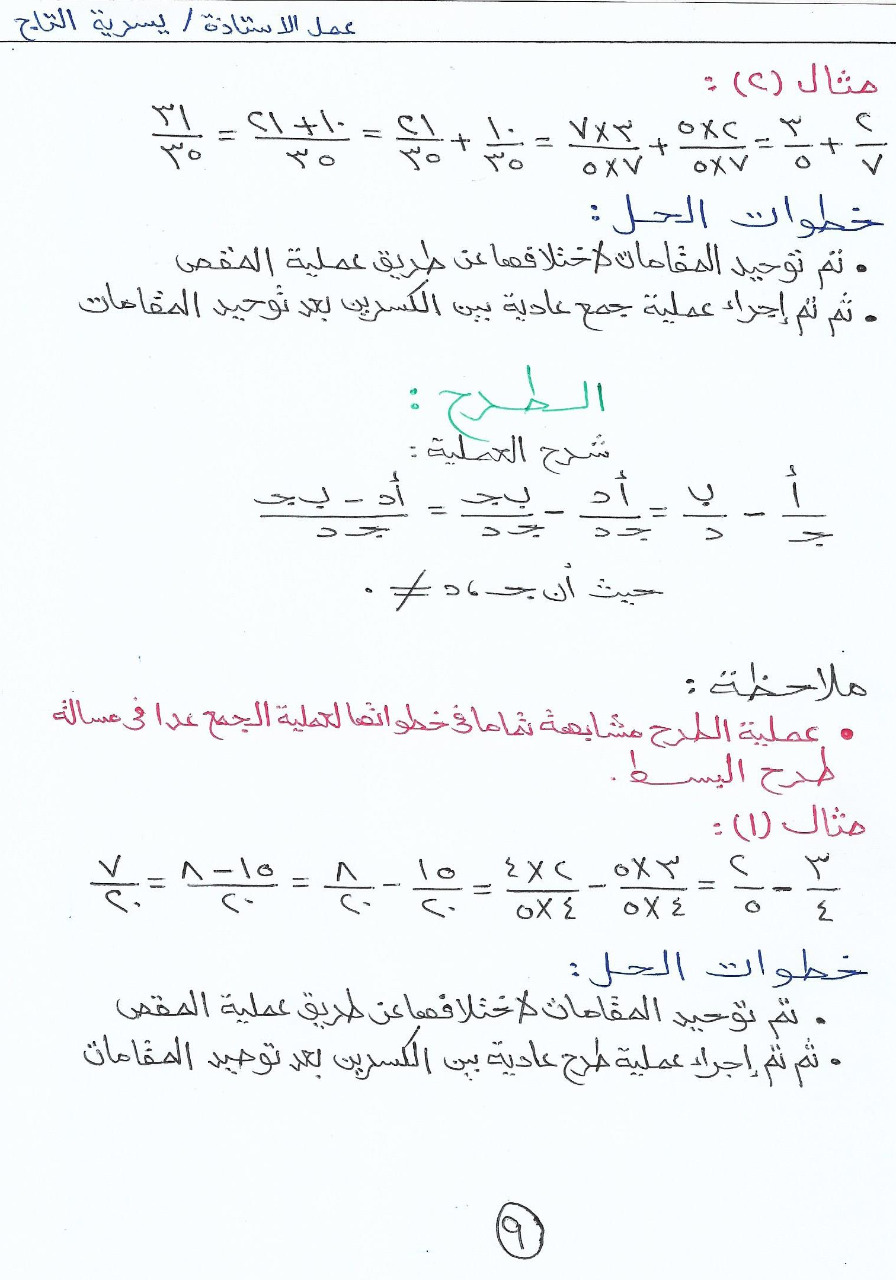 عمل الاستاذة / يسرية التاج
مثال (٢) :
٢/٧ + ٣/٥ = ٢×٥/٧×٥ + ٣×٧/٧×٥ = ١٠/٣٥ + ٢١/٣٥ = ١٠+٢١/٣٥ = ٣١/٣٥
خطوات الحل :
• تم توحيد المقامات لاختلافهما عن طريق عملية المقص
• ثم تم إجراء عملية جمع عادية بين الكسرين بعد توحيد المقامات
الطرح :
شرح العملية :
أ/جـ - ب/د = أد/جـد - ب جـ/جـد = أد - ب جـ/جـد
حيث أن جـ ، د ≠ ٠
ملاحظة :
• عملية الطرح مشابهة تماما فى خطواتها لعملية الجمع عدا فى مسالة
طرح البسط .
مثال (١) :
٣/٤ - ٢/٥ = ٣×٥/٤×٥ - ٢×٤/٤×٥ = ١٥/٢٠ - ٨/٢٠ = ١٥-٨/٢٠ = ٧/٢٠
خطوات الحل :
• تم توحيد المقامات لاختلافهما عن طريق عملية المقص
• ثم تم إجراء عملية طرح عادية بين الكسرين بعد توحيد المقامات
٩